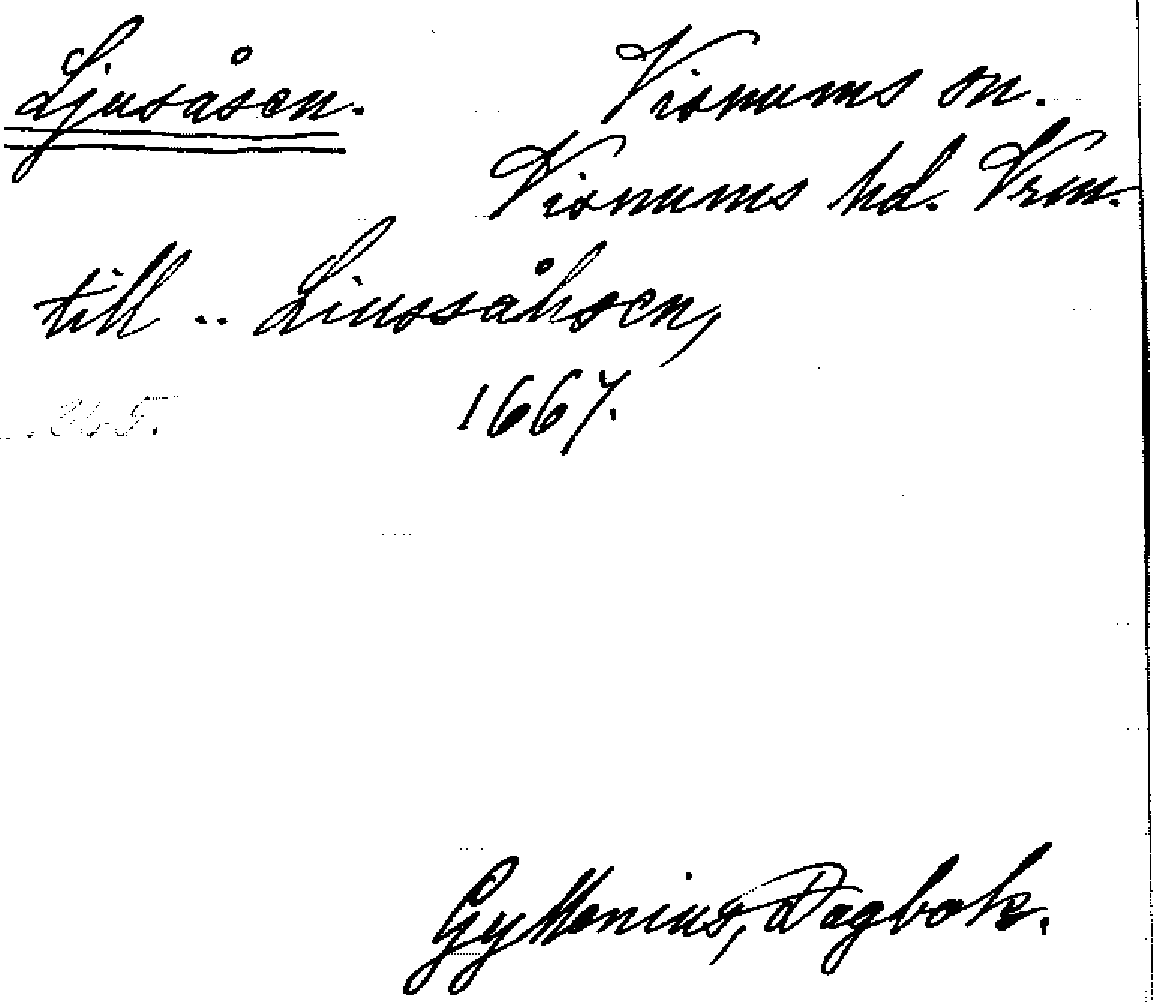 Ljusåsen. Visnums sn.
Visnums hd. Vrm.
till .. Liussåhsen,
1667.
365.
Gyllenius, Dagbok.